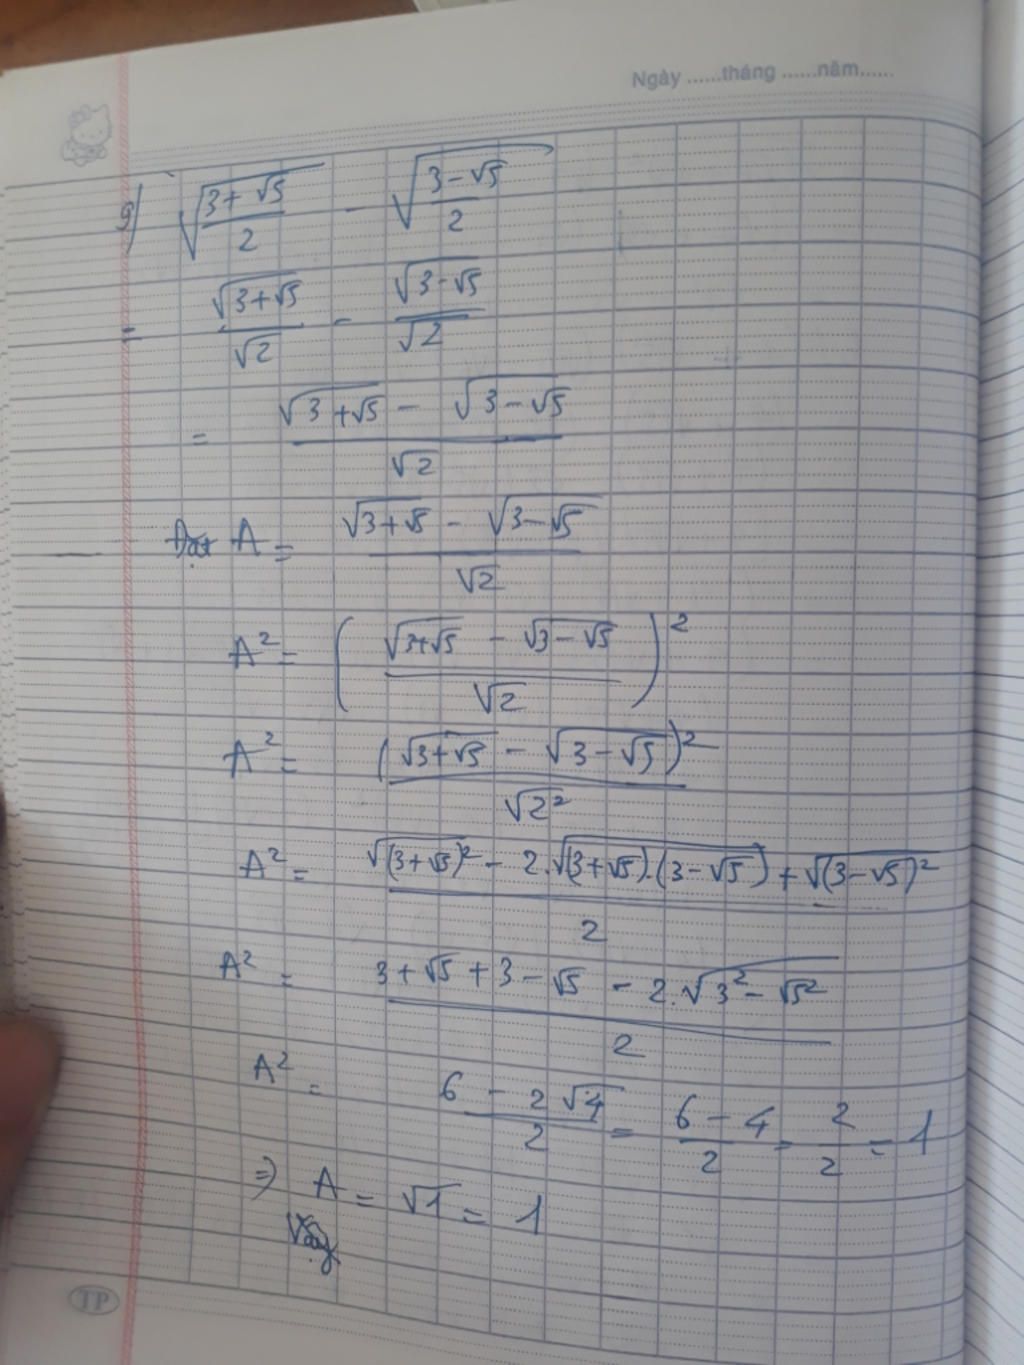 Ngày ......tháng ......năm......
g) √((3+√5)/2) - √((3-√5)/2)
= √(3+√5)/√2 - √(3-√5)/√2
= (√(3+√5) - √(3-√5))/√2
Đặt A = (√(3+√5) - √(3-√5))/√2
A² = ((√(3+√5) - √(3-√5))/√2)²
A² = (√(3+√5) - √(3-√5))²/√2²
A² = (√(3+√5)² - 2.√(3+√5).(3-√5) + √(3-√5)²)/2
A² = (3+√5+3-√5 - 2.√(3²-√5²))/2
A² = (6 - 2√4)/2 = (6-4)/2 = 2/2 = 1
=> A = √1 = 1
Vậy
TP